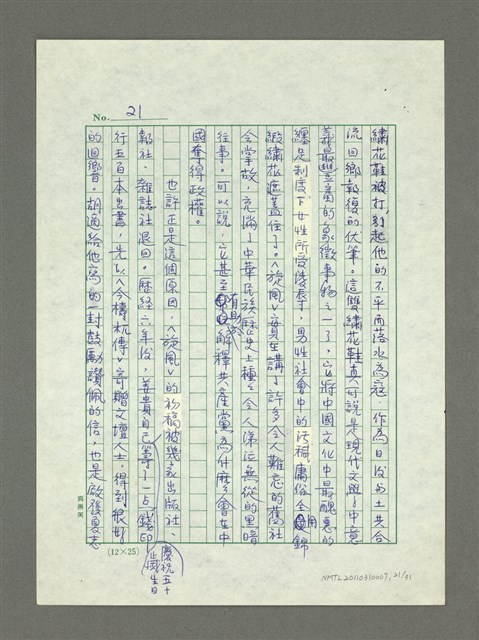 No. 21
繡花鞋被打,引起他的不平而落水為寇,作為日後與土共合
流回鄉報復的伏筆。這雙繡花鞋真可說是現代文學中意
義最豐富的象徵事物之一了,它將中國文化中最醜惡的
纏足制度下女性所受凌辱,男性社會中的污穢庸俗全用錦
緞繡花遮蓋住了。〈旋風〉實在講了許多令人難忘的舊社
會掌故,充滿了中華民族歷史上種々令人涕泣無從的黑暗
往事。可以說,它甚至有助於解釋共產黨為什麼會在中
國奪得政權。
也許正是這個原因,〈旋風〉的初稿被幾家出版社、
報社、雜誌社退回。歷經六年後,姜貴自己籌了一点錢印
行五百本出書,先以〈今檮杌傳〉寄贈文壇人士,得到很好
的迴響。胡適給他寫的一封鼓勵讚佩的信,也是啟發夏志
慶祝五十
生日
(12×25)
NMTL20110310007, 21/31